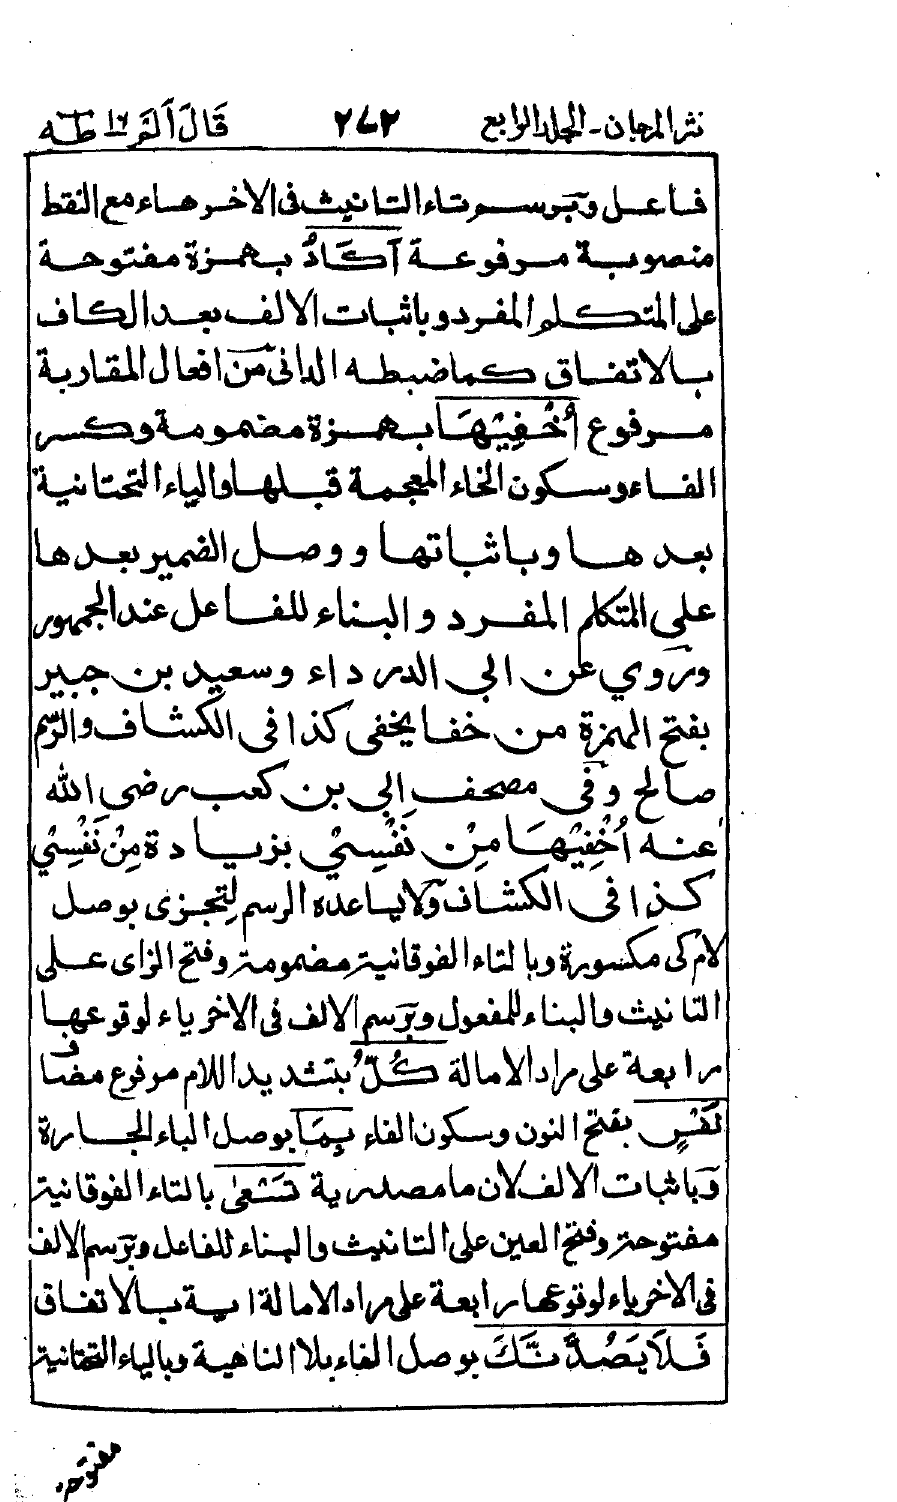 نثر المرجان - المجلد الرابع ٢٧٢ قَالَ أَلَمْ ١٦ طٰه
فاعل وبرسم تاء التانيث فى الاخر هاء مع النقط
منصوبة مرفوعة أَكَادُ بهمزة مفتوحة
على المتكلم المفرد وباثبات الالف بعد الكاف
بالاتفاق كما ضبطه الدانى من افعال المقاربة
مرفوع أُخْفِيْهَا بهمزة مضمومة وكسر
الفاء وسكون الخاء المعجمة قبلها والياء التحتانية
بعدها وباثباتها ووصل الضمير بعدها
على المتكلم المفرد والبناء للفاعل عند الجمهور
وروي عن ابي الدرداء وسعيد بن جبير
بفتح الهمزة من خفا يخفى كذا فى الكشاف والرسم
صالح وفى مصحف ابي بن كعب رضي الله
عنه أُخْفِيْهَا مِنْ نَفْسِيْ بزيادة مِنْ نَفْسِيْ
كذا فى الكشاف ولا يساعده الرسم لِتُجْزى بوصل
لام كى مكسورة وبالتاء الفوقانية مضمومة وفتح الزاى على
التانيث والبناء للمفعول وبرسم الالف فى الاخر ياء لوقوعها
رابعة على مراد الامالة كُلُّ بتشديد اللام مرفوع مضاف
نَفْسٍ بفتح النون وسكون الفاء بِمَا بوصل الباء الجارة
وباثبات الالف لان ما مصدرية تَسْعٰى بالتاء الفوقانية
مفتوحة وفتح العين على التانيث والبناء للفاعل وبرسم الالف
فى الاخر ياء لوقوعها رابعة على مراد الامالة اية بالاتفاق
فَلَا يَصُدَّنَّكَ بوصل الفاء بلا الناهية وبالياء التحتانية
مفتوحة